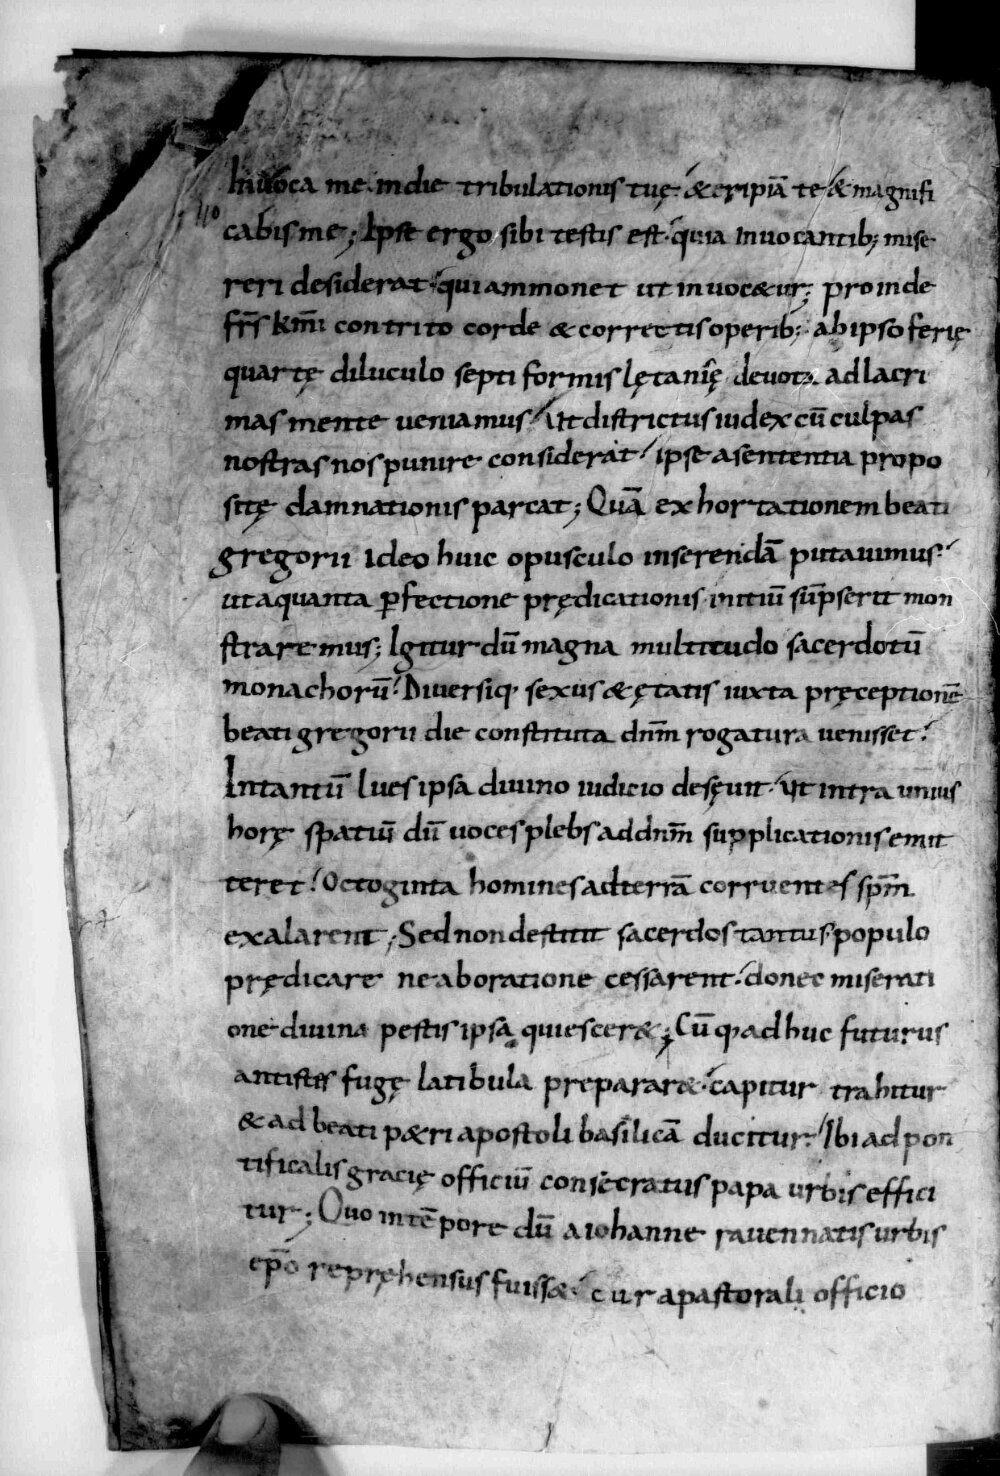 Inuoca me in die tribulationis tuę & eripiā te & magnifi
cabis me; Ipse ergo sibi testis est quia inuocantib; mise
reri desiderat qui ammonet ut inuoc&ur; proinde
fr̄s km̄i contrito corde & correctis operib; ab ipso ferię
quartę diluculo septiformis lętanię deuota ad lacri
mas mente ueniamus ut districtus iudex cū culpas
nostras nos punire considerat ipse a sententia propo
sitę damnationis parcat; Quā exhortationem beati
gregorii ideo huic opusculo inserendā putauimus
ut a quanta ꝑfectione prędicationis initiū sūpserit mon
straremus; Igitur dū magna multitudo sacerdotū
monachorū Diuersiq· sexus & ętatis iuxta pręceptionē
beati gregorii die constituta dnm̄ rogatura uenisset
Intantū lues ipsa diuino iudicio desęuit ut intra unius
horę spatiū dū uoces plebs ad dnm̄ supplicationis emit
teret Octoginta homines ad terrā corruentes spm̄
exalarent; Sed non destitit sacerdos tantus populo
prędicare ne ab oratione cessarent donec miserati
one diuina pestis ipsa quiescer&; Cū q· adhuc futurus
antistes fugę latibula preparar& capitur trahitur
& ad beati p&ri apostoli basilicā ducitur Ibi ad pon
tificalis gracię officiū consecratus papa urbis effici
tur; Quo in tēpore dū a iohanne rauennatis urbis
ep̄o repręhensus fuiss& cur a pastorali officio